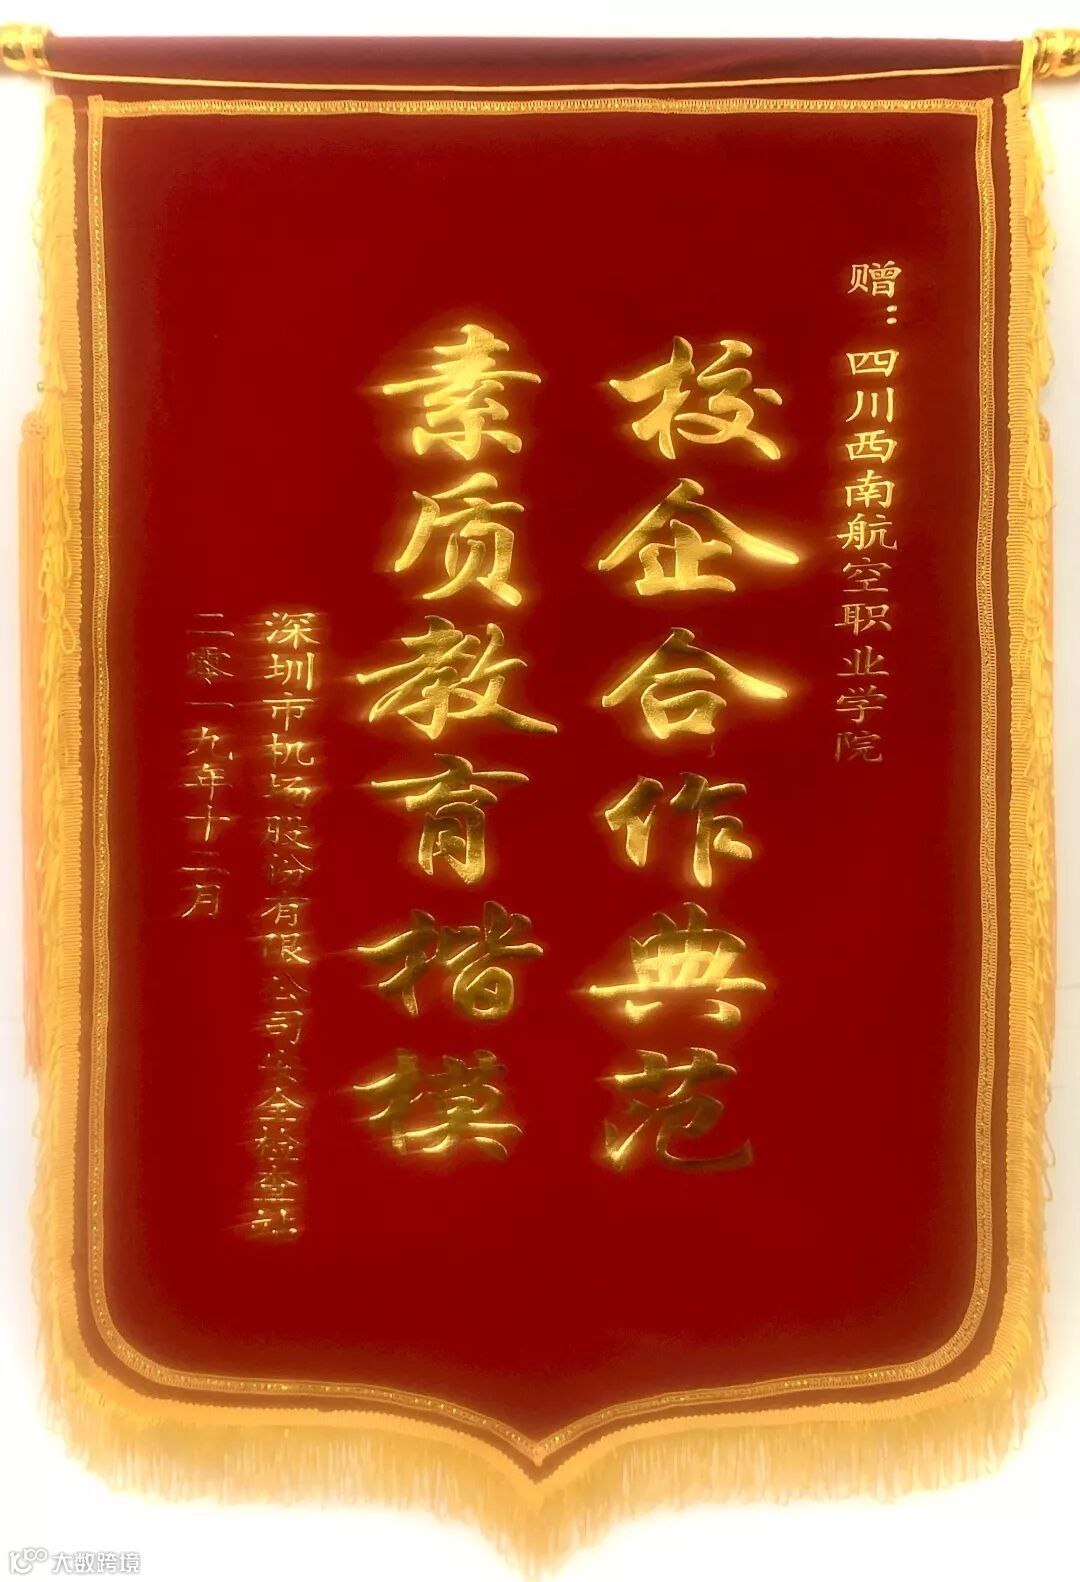 赠：四川西南航空职业学院
校企合作典范
素质教育楷模
深圳市机场股份有限公司安全检查站
二零一九年十二月
大数跨境